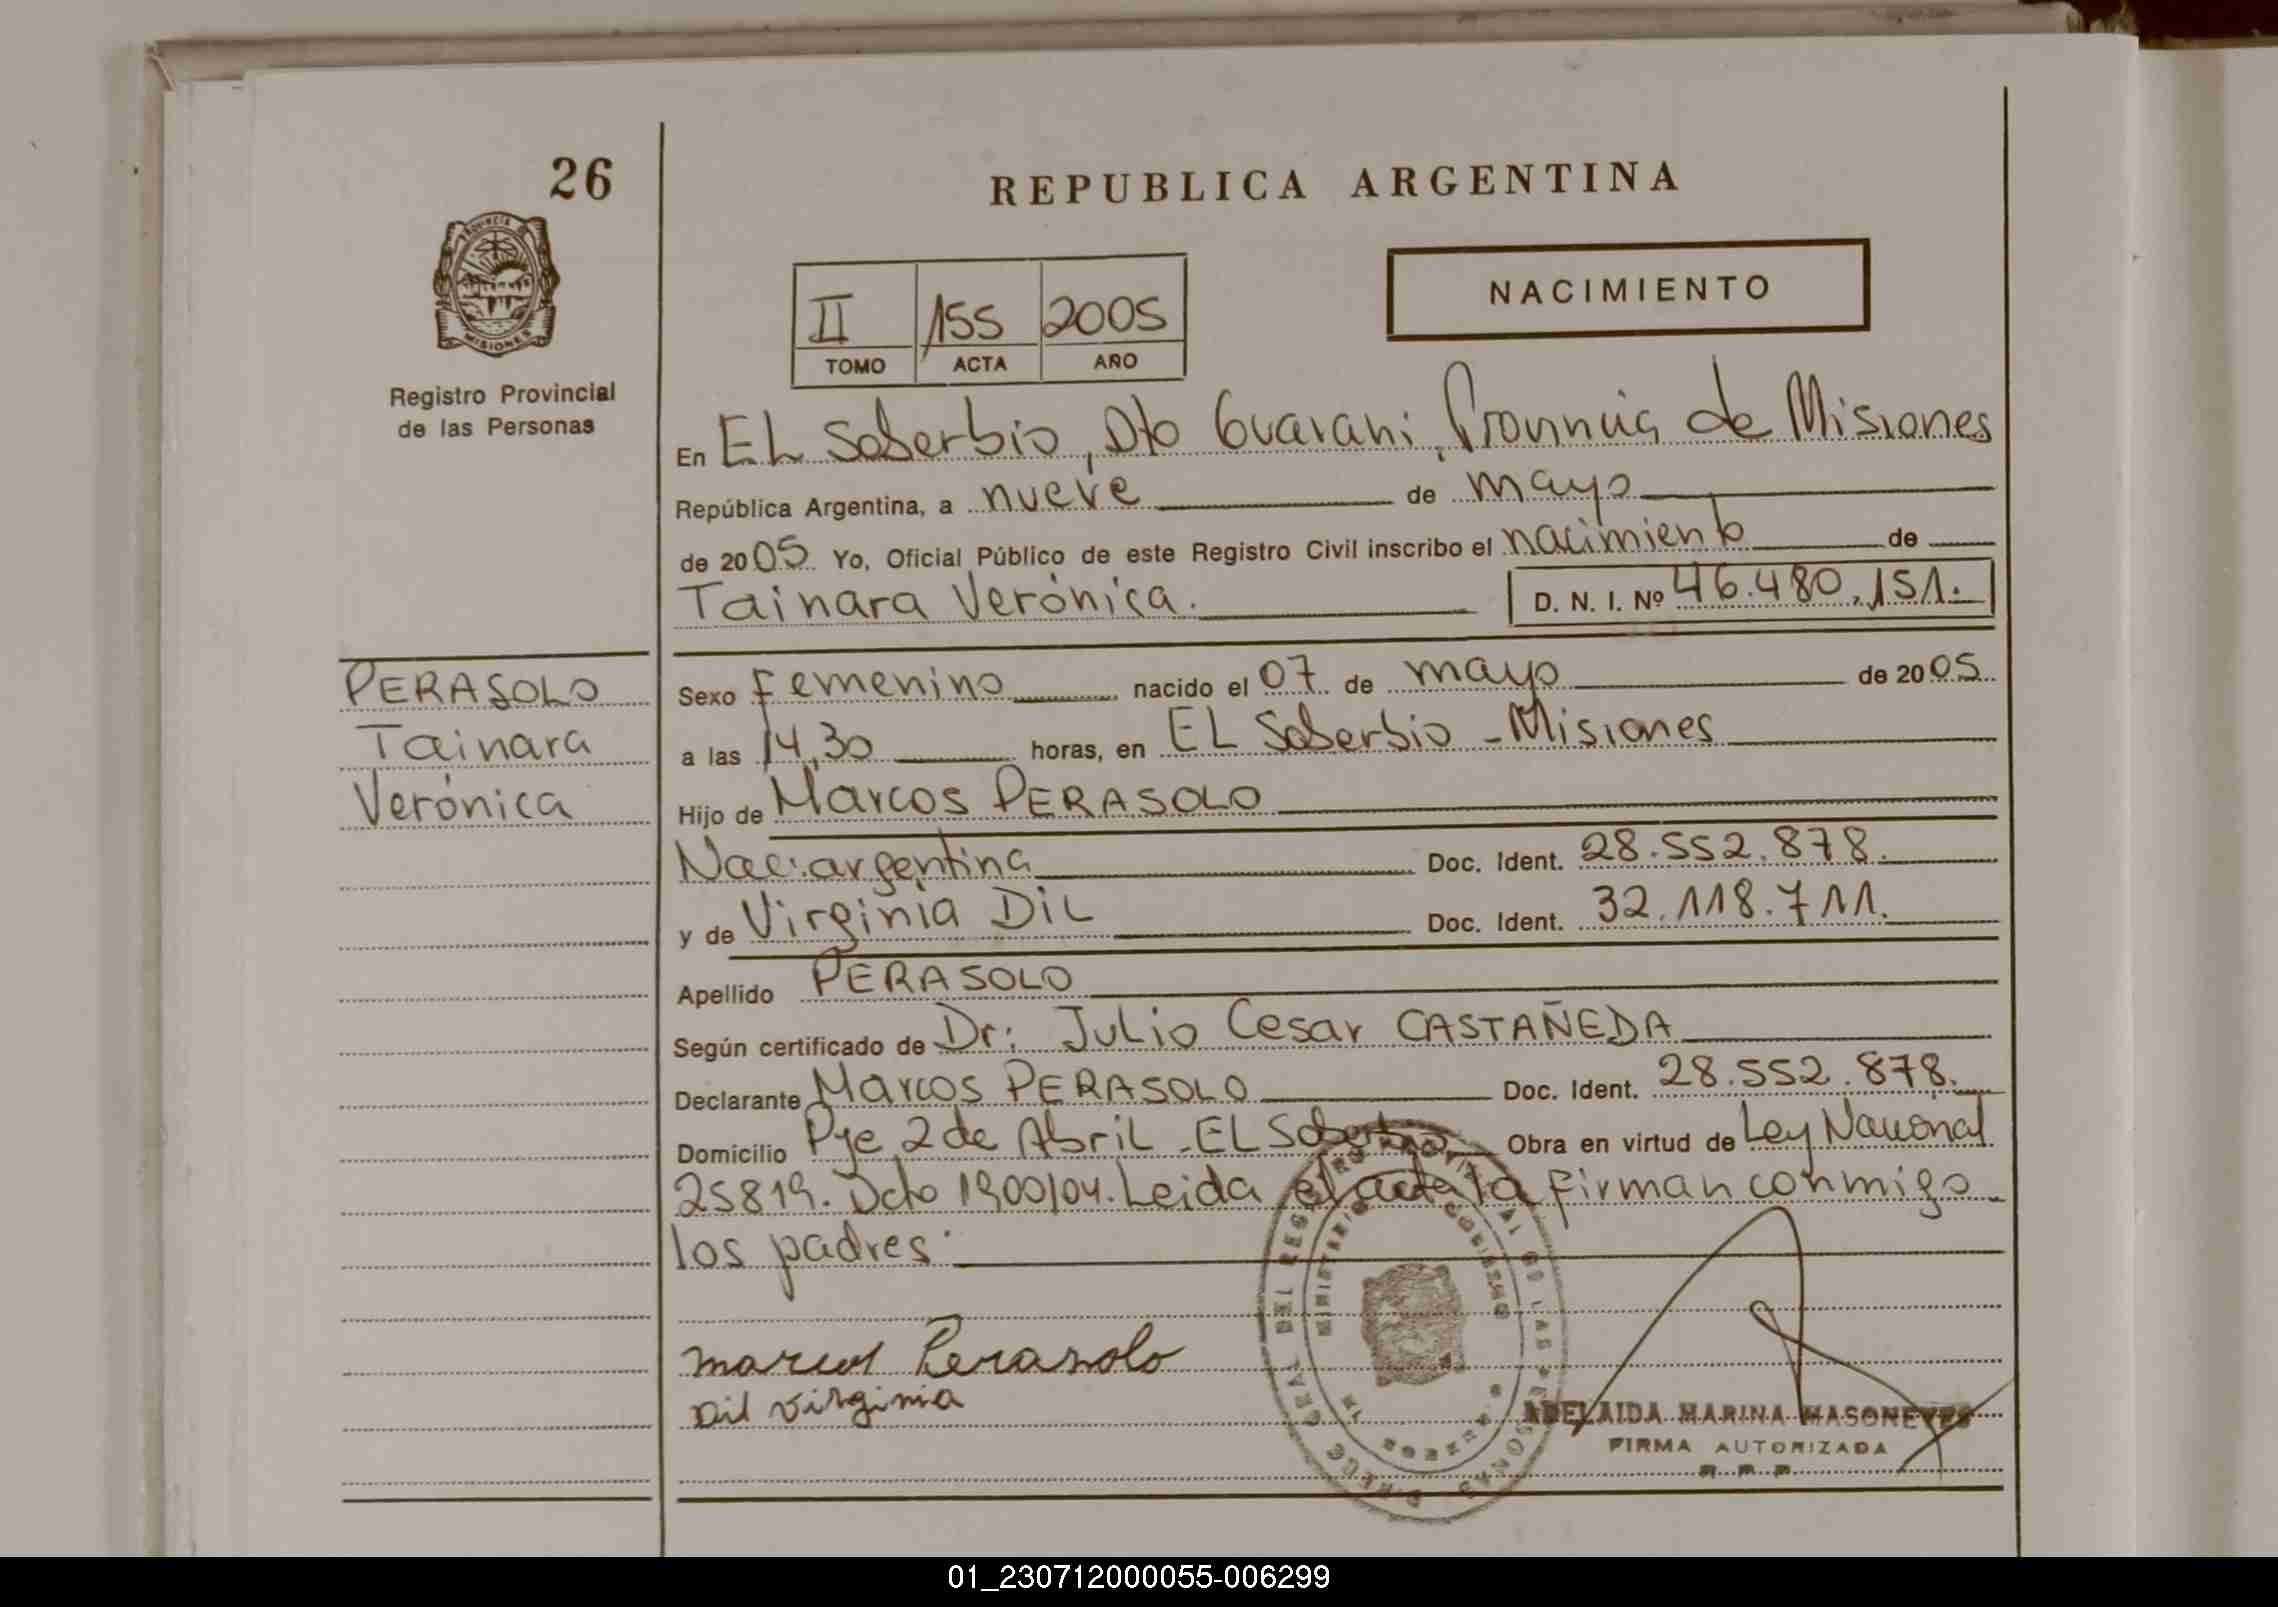 26
REPUBLICA ARGENTINA
PROVINCIA DE
MISIONES
Registro Provincial
de las Personas
NACIMIENTO
II 155 2005
TOMO ACTA AÑO
En EL Soberbio, Dto Guaraní, Provincia de Misiones
República Argentina, a nueve de mayo
de 2005 Yo, Oficial Público de este Registro Civil inscribo el nacimiento de
Tainara Verónica. D. N. I. Nº 46.480.151.
PERASOLO
Tainara
Verónica
Sexo Femenino nacido el 07 de mayo de 2005
a las 14,30 horas, en EL Soberbio - Misiones
Hijo de Marcos PERASOLO
Nac: argentina Doc. Ident. 28.552.878.
y de Virginia DiL Doc. Ident. 32.118.711.
Apellido PERASOLO
Según certificado de Dr: Julio Cesar CASTAÑEDA
Declarante Marcos PERASOLO Doc. Ident. 28.552.878.
Domicilio Pje 2 de Abril - EL Soberbio Obra en virtud de Ley Nacional
25819. Dcto 1900/04. Leida el acta la firman conmigo
los padres.
marcos Perasolo
Dil virginia
DIREC. GRAL. DEL REGISTRO PROVINCIAL DE LAS PERSONAS
MINISTERIO DE GOBIERNO
ADELAIDA MARINA MASONEYRO
FIRMA AUTORIZADA
R.P.P.
01_230712000055-006299